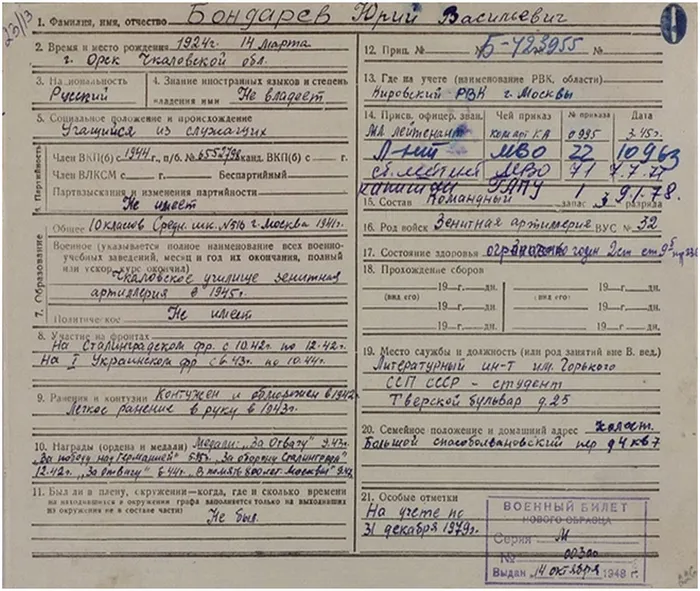 25/13
1. Фамилия, имя, отчество Бондарев Юрий Васильевич
2. Время и место рождения 1924г. 14 марта
г. Орск Чкаловской обл.
3. Национальность
Русский
4. Знание иностранных языков и степень
владения ими Не владеет
5. Социальное положение и происхождение
Учащийся из служащих
6. Партийность
Член ВКП(б) с 1944 г., п/б. № 6552798 канд. ВКП(б) с г.
Член ВЛКСМ с г. Беспартийный
Партвзыскания и изменения партийности
Не имеет
7. Образование
Общее 10 классов Средн. шк. №516 г. Москва 1941г.
Военное (указывается полное наименование всех военно-
учебных заведений, месяц и год их окончания, полный
или ускор. курс окончил)
Чкаловское училище зенитная
артиллерия в 1945г.
Политическое Не имеет
8. Участие на фронтах
На Сталинградском фр. с 10.42г. по 12.42г.
На I Украинском фр с 6.43г. по 10.44г.
9. Ранения и контузии Контужен и обморожен в 1942г
Легкое ранение в руку в 1943г.
10. Награды (ордена и медали) Медали: „За Отвагу"
„За победу над Германией" „За оборону Сталинграда"
12.42г. „За отвагу" 6.44г. „В память 800 лет Москвы"
11. Был ли в плену, окружении—когда, где и сколько времени
на находившихся в окружении графа заполняется только на выходивших
из окружения не в составе части)
Не был.
12. Прип. № № Б-423955
13. Где на учете (наименование РВК, области)
Кировский РВК г. Москвы
14. Присв. офицер. зван. Чей приказ № приказа Дата
Мл лейтенант ком арт КА 0995 3.45г.
Л-нт МВО 22 10 9 63
ст. лейтенант МВО 71 7.7.71
капитан ГЛПУ 1 9.1.78.
15. Состав Командный запас 3 разряда
16. Род войск Зенитная артиллерия ВУС № 32
17. Состояние здоровья 2 ст ст 9б
18. Прохождение сборов
19— г. — дн. 19— г. — дн.
(вид его) (вид его)
19— г. — дн. 19— г. — дн.
19— г. — дн. 19— г. — дн.
19. Место службы и должность (или род занятий вне В. вед.)
Литературный ин-т им. Горького
ССП СССР – студент
Тверской бульвар д. 25
20. Семейное положение и домашний адрес холост.
Большой пер д 4 кв 7
21. Особые отметки
На учете по
31 декабря 1979г.
ВОЕННЫЙ БИЛЕТ
НОВОГО ОБРАЗЦА
Серия М
№ 00300
Выдан „14 октября 1948 г.